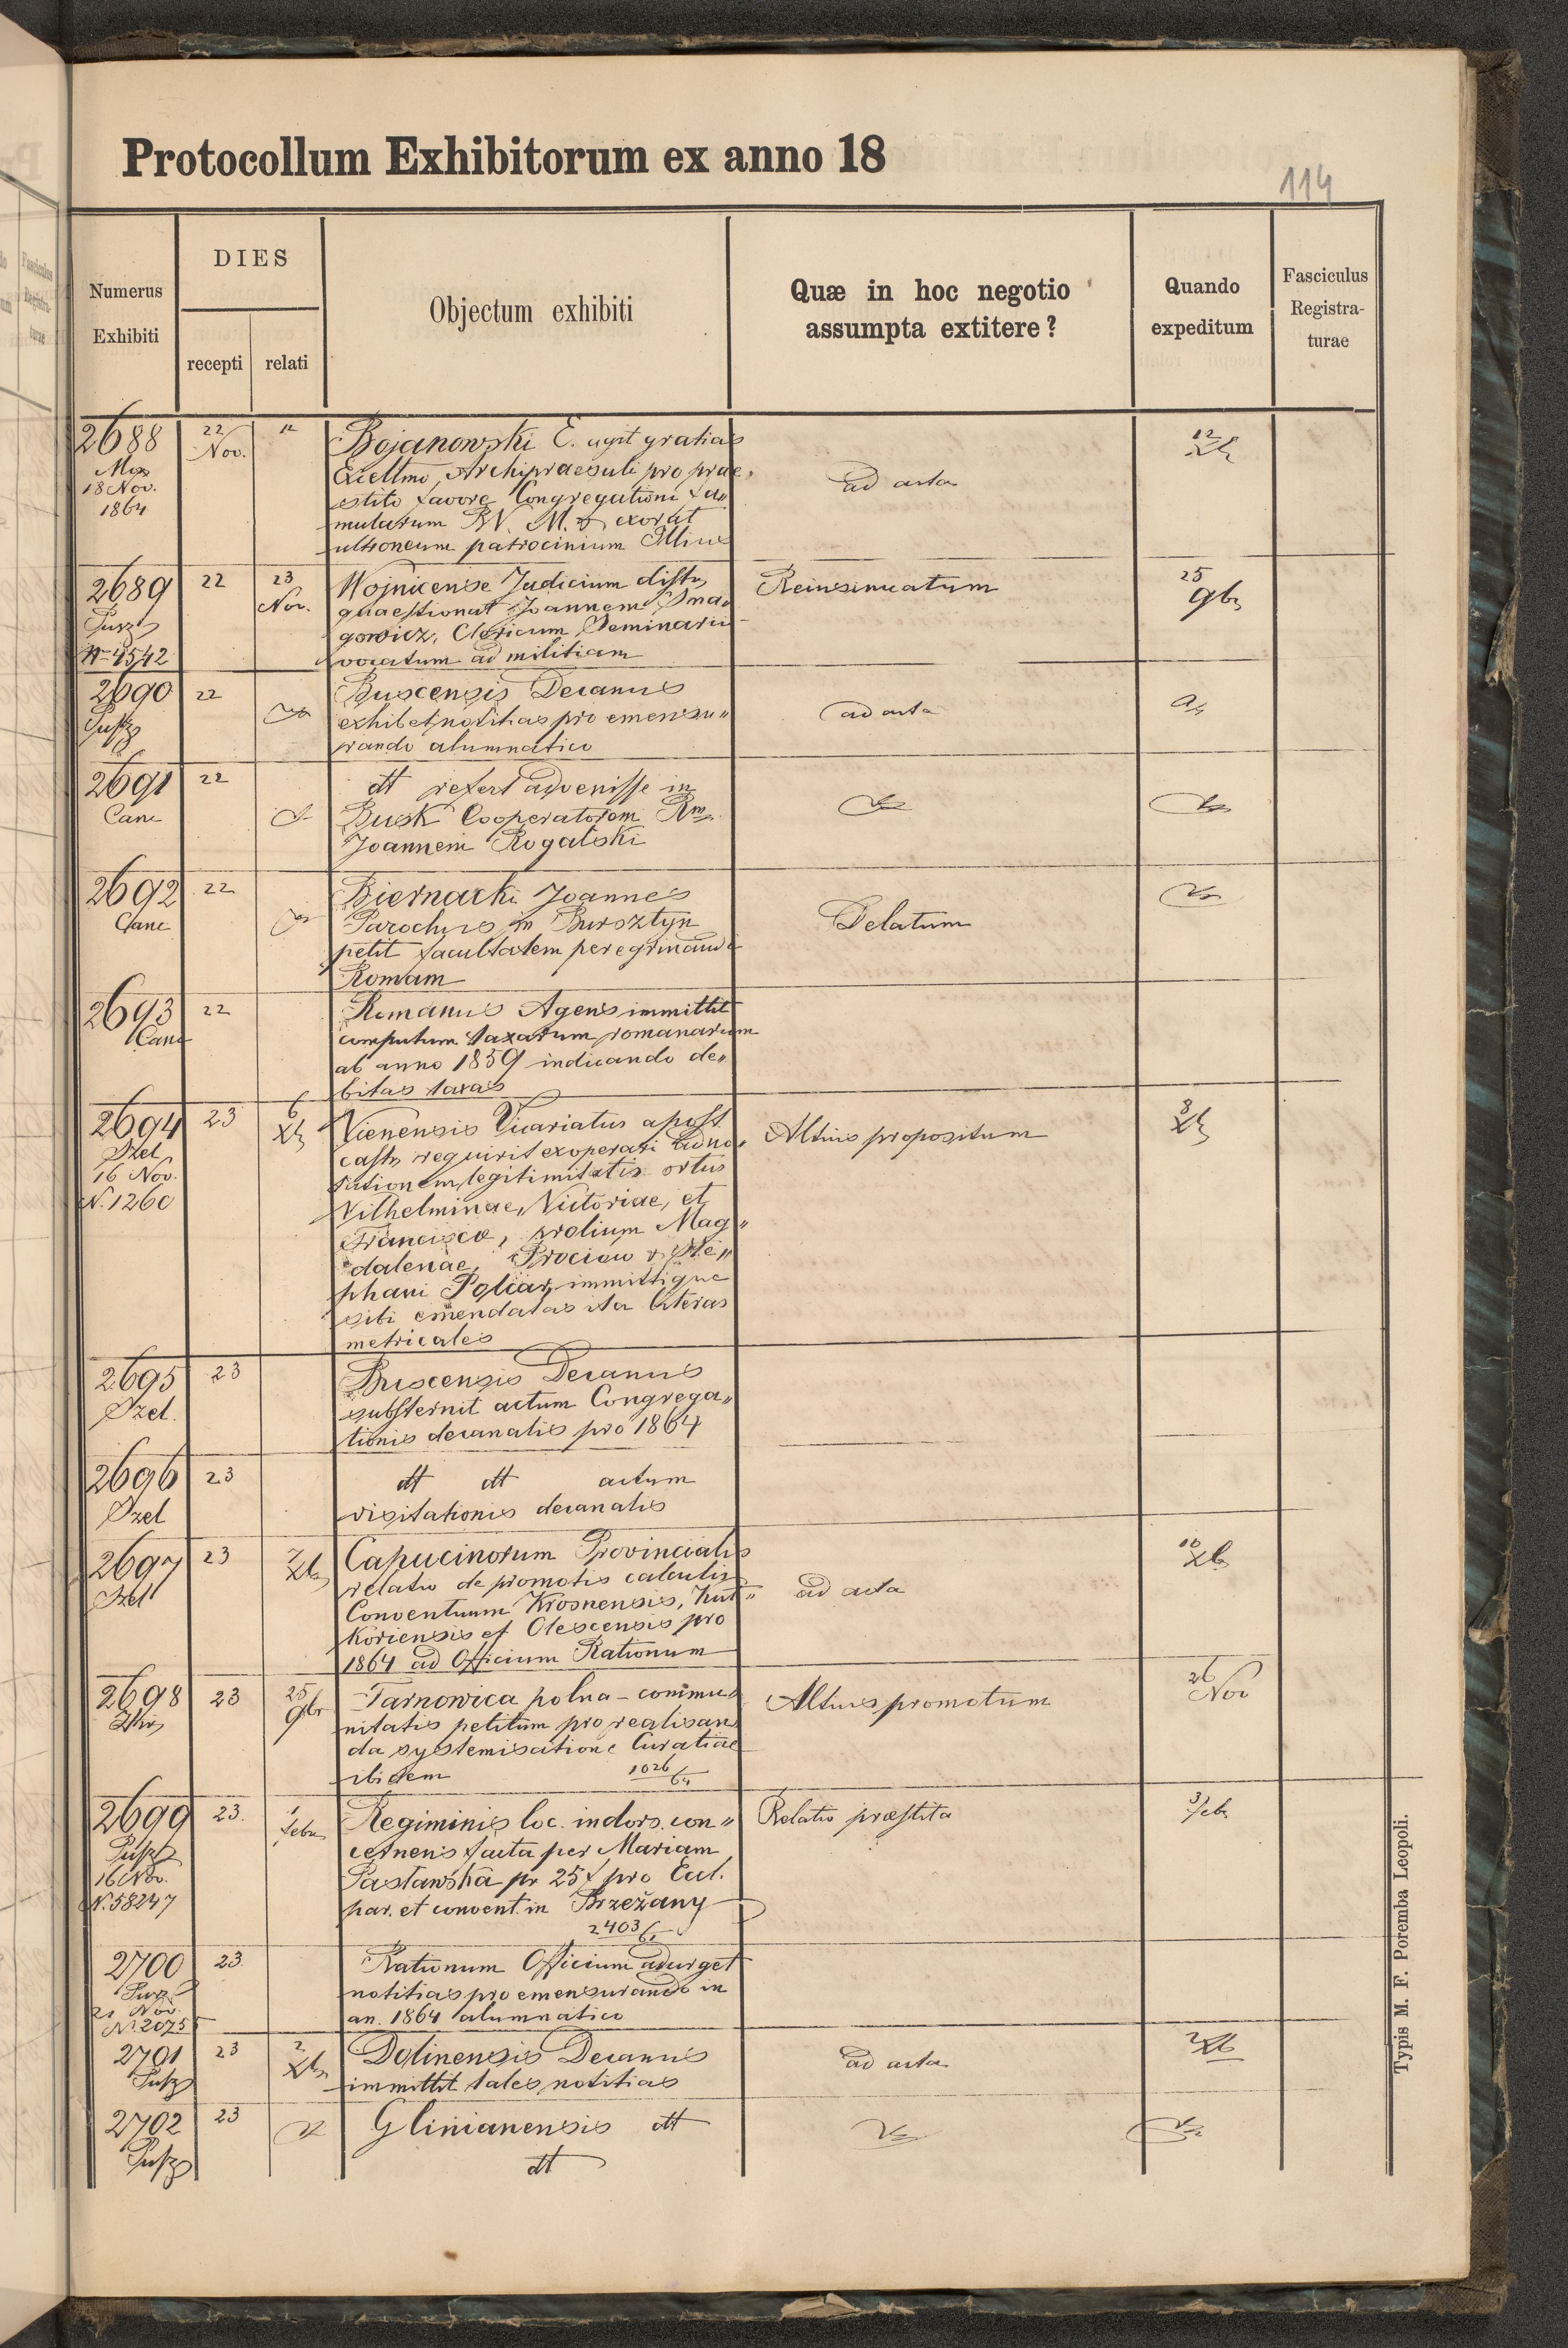 Protocollum Exhibitorum ex anno 18
114
Numerus Exhibiti
DIES
recepti
relati
Objectum exhibiti
Quæ in hoc negotio
assumpta extitere?
Quando
expeditum
Fasciculus
Registra-
turae
2688 22 Nov. 12 Bojanowski E. agit gratias 12 Xb
18 Nov. Excellmo Archipraesuli pro prae„ ad acta
1864 estito favore Congregationi fa„
mularum B.V. M. & exorat
ultroneum patrocinium Illius
2689 22 23 Nov. Wojnicense Judicium distr. Reinsinuatum 25 9b
quaestionat Joannem
gowicz, Clericum Seminarii
N 4542 vocatum ad militiam
2690 22 Buscensis Decanus
exhibet notitias pro emensu„ ad acta
rando alumnatico
2691 22 dt refert advenisse in
Canc Busk Cooperatorem Rm
Joannem Rogalski
2692 22 Biernacki Joannes
Canc Parochus in Bursztyn Delatum
petit facultatem peregrinandi
Romam
2693 22 Romanus Agens immittit
Canc computum taxarum romanarum
ab anno 1859 indicando de„
bitas taxas
2694 23 6 Xb Vienensis Vicariatus apost. 8 Xb
Szel castr. requirit exoperari adno„ Altius propositum
16 Nov. tationem legitimitatis ortus
N. 1260 Vilhelminae, Victoriae, et
Francisca, prolium Mag„
dalenae, Prociow & Ste„
phani Poliar, immittique
sibi emendatas ita literas
metricales
2695 23 Buscensis Decanus
Szel. substernit actum Congrega„
tionis decanalis pro 1864
2696 23 dt dt actum
Szel visitationis decanalis
2697 23 7 Xb Capucinorum Provincialis 10 Xb
Szel relatio de promotis calculis ad acta
Conventuum Krosnensis, Kut„
Koriensis et Olescensis pro
1864 ad Officium Rationum
2698 23 25 9br Tarnowica polna - commu„ Altius promotum 26 Nov
nitatis petitum pro realisan
da systemisatione Curatiae
ibidem 1026/64
2699 23 1 febr Regiminis loc. indors. con„ Relatio præstita 3 feb
cernens facta per Mariam
16 Nov. Pastawska pr 25 f pro Eccl.
N. 58247 par. et convent. in Brzeżany
2403/64
2700 23 Rationum Officium adurget
21 Nov. notitias pro emensurando in
N. 2075 an. 1864 alumnatico
2701 23 2 Xb Dolinensis Decanus ad acta 2 Xb
immittit tales notitias
2702 23 Glinianensis dt
dt
Typis M. F. Poremba Leopoli.